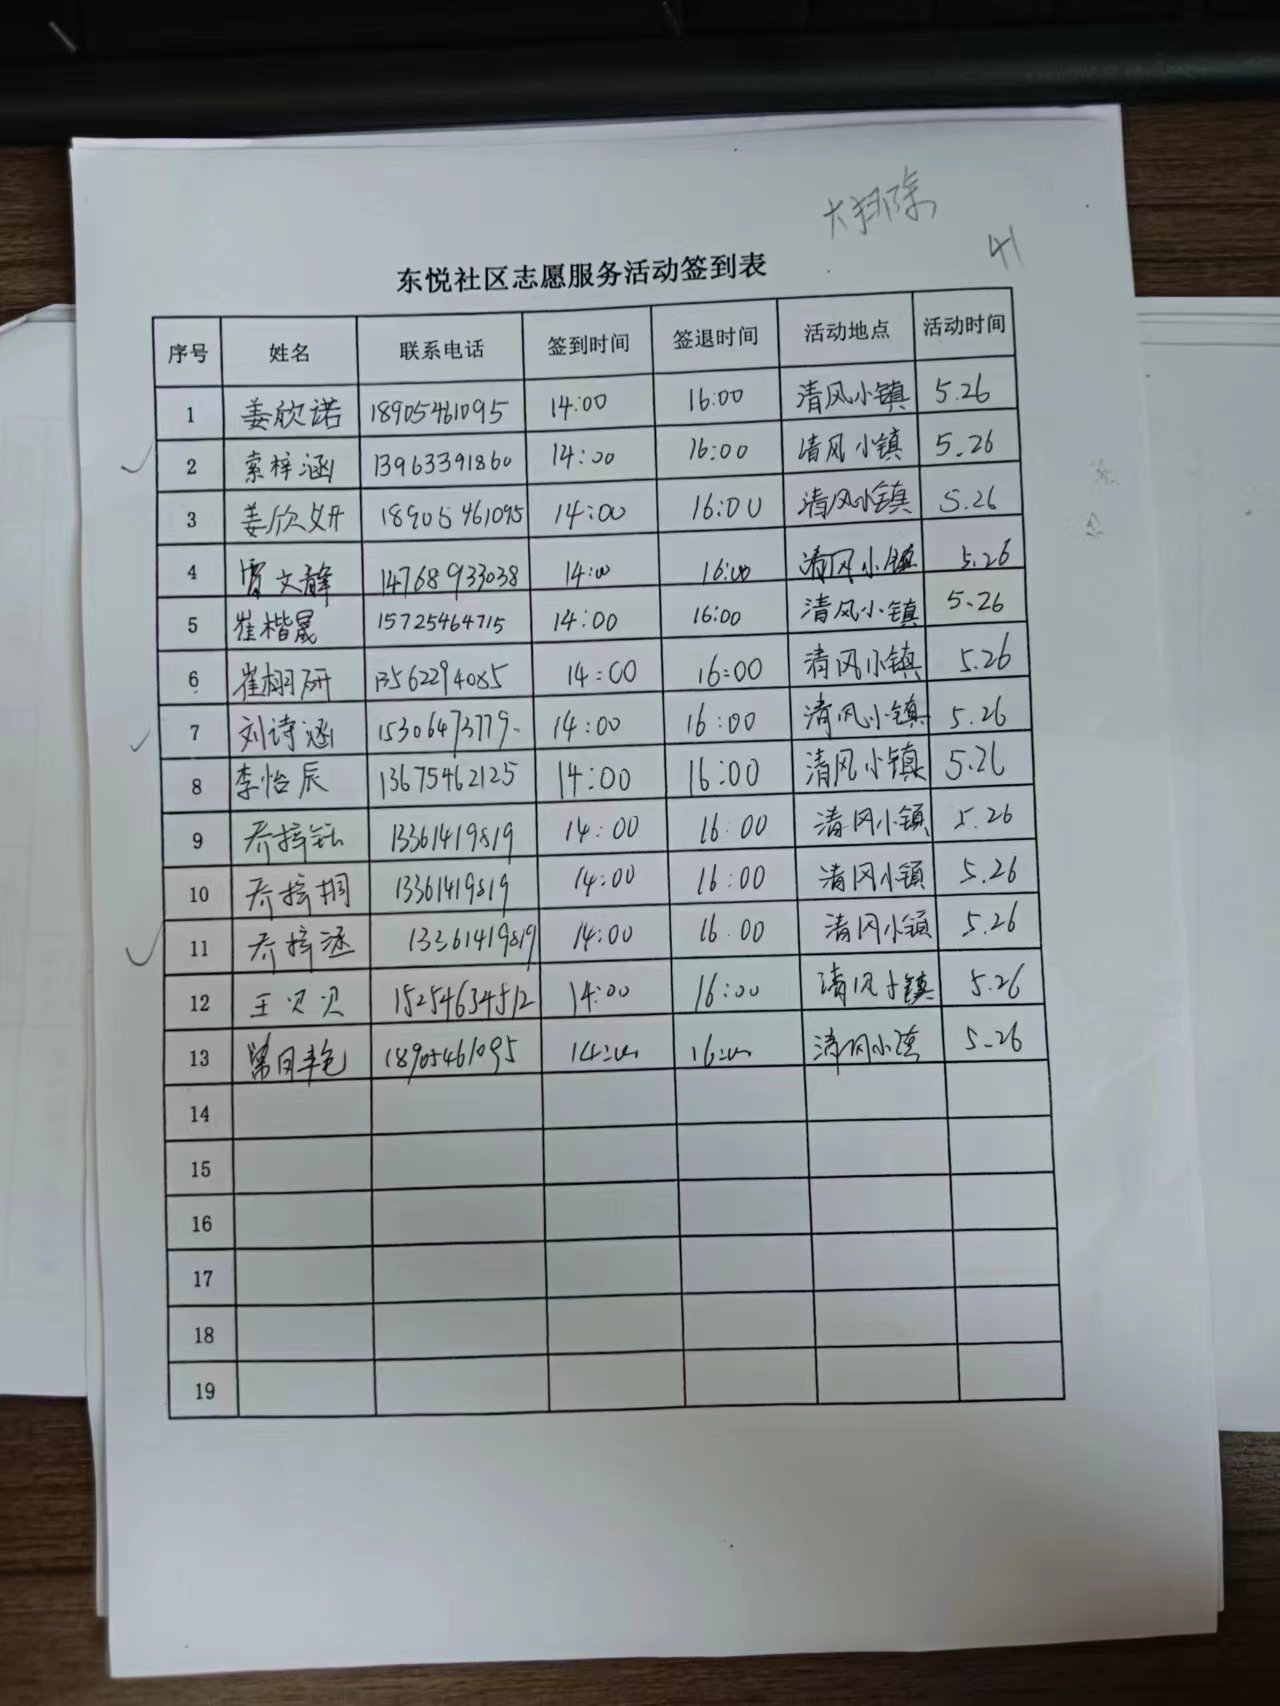 大排除
41
东悦社区志愿服务活动签到表
序号 姓名 联系电话 签到时间 签退时间 活动地点 活动时间
1 姜欣诺 18905461095 14:00 16:00 清风小镇 5.26
2 索梓涵 13963391860 14:00 16:00 清风小镇 5.26
3 姜欣妍 18905461095 14:00 16:00 清风小镇 5.26
4 贾文静 14768933038 14:00 16:00 清风小镇 5.26
5 崔楷晟 15725464715 14:00 16:00 清风小镇 5.26
6 崔栩研 13562294085 14:00 16:00 清风小镇 5.26
7 刘诗涵 15306473779 14:00 16:00 清风小镇 5.26
8 李怡辰 13675462125 14:00 16:00 清风小镇 5.26
9 乔梓钰 13361419819 14:00 16:00 清风小镇 5.26
10 乔梓桐 13361419819 14:00 16:00 清风小镇 5.26
11 乔梓涵 13361419819 14:00 16:00 清风小镇 5.26
12 王贝贝 15254634512 14:00 16:00 清风小镇 5.26
13 18905461095 14:00 16:00 清风小镇 5.26
14
15
16
17
18
19